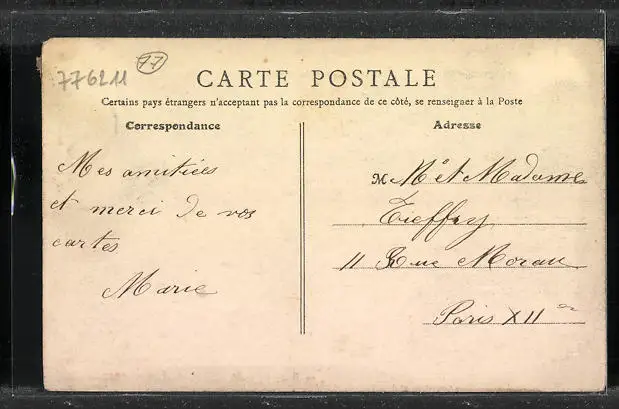 776211
77
CARTE POSTALE
Certains pays étrangers n'acceptant pas la correspondance de ce côté, se renseigner à la Poste
Correspondance
Mes amitiées
et merci de vos
cartes
Marie
Adresse
M Mr et Madame
11 Rue Moreau
Paris XII